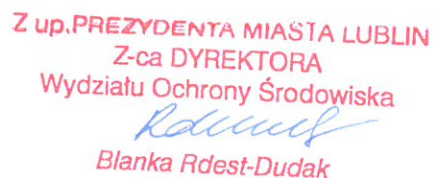 Z up.PREZYDENTA MIASTA LUBLIN
Z-ca DYREKTORA
Wydziału Ochrony Środowiska
Blanka Rdest-Dudak